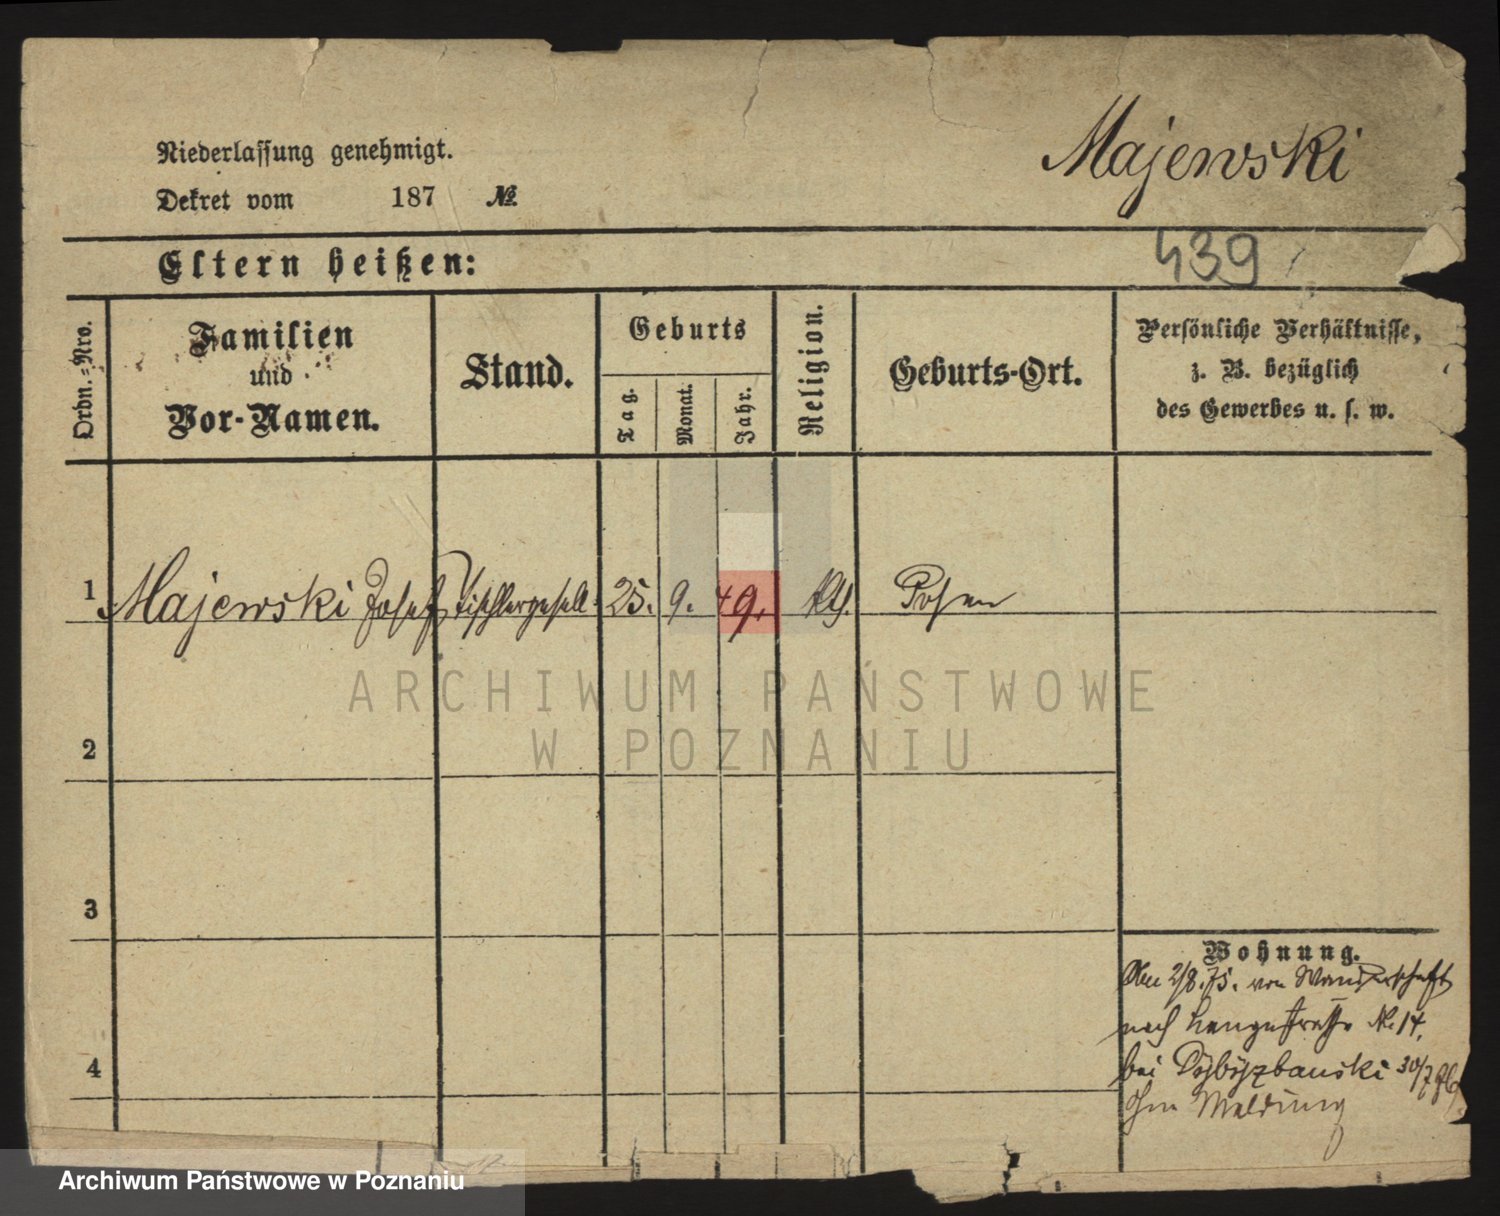 Niederlassung genehmigt.
Dekret vom 187 №
Majewski
439
Eltern heißen:
Ordn.-Nro.
Familien
und
Vor-Namen.
Stand.
Geburts
Tag.
Monat.
Jahr.
Religion.
Geburts-Ort.
Persönliche Verhältnisse,
z. B. bezüglich
des Gewerbes u. s. w.
1 Majewski Josef Tischlergesell 25. 9. 49. kth. Posen
2
3
4
Wohnung.
2/8.75. von Wanderschaft
nach Langestraße No 14,
bei 30/7
ohne Meldung
ARCHIWUM PAŃSTWOWE
W POZNANIU
Archiwum Państwowe w Poznaniu